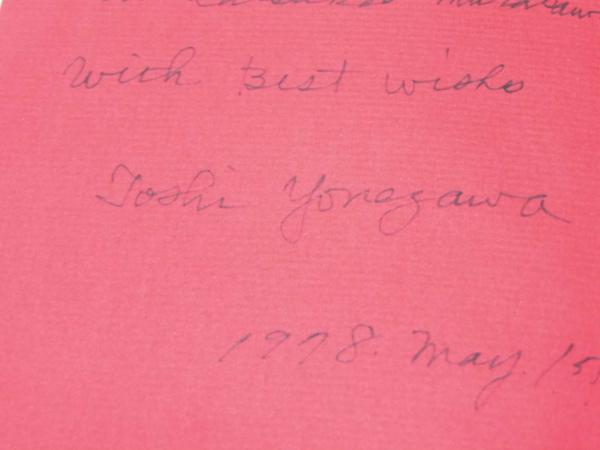 With Best wishes
Toshi Yonezawa
1978. May. 15